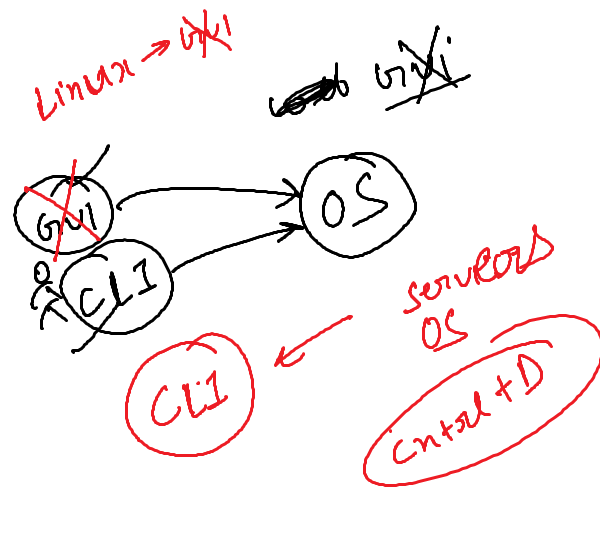 Linux → GUI
GUI
GUI
OS
CLI
servers
OS
CLI
Cntrl + D